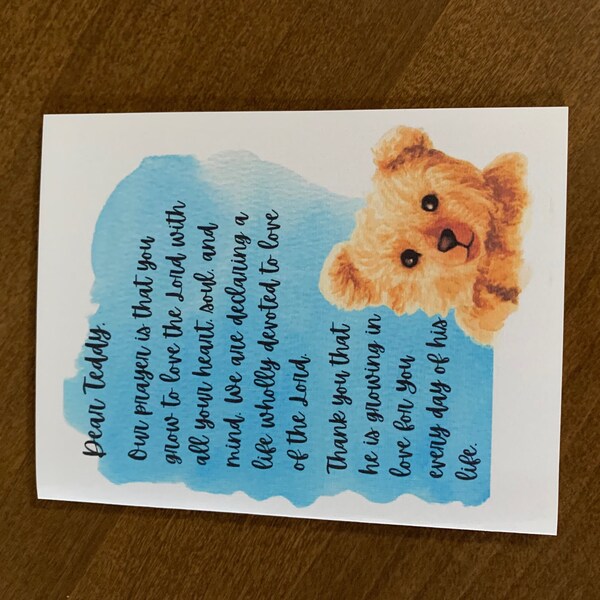 Dear Teddy,
Our prayer is that you
grow to love the Lord with
all your heart, soul, and
mind. We are declaring a
life wholly devoted to love
of the Lord.
Thank you that
he is growing in
love for you
every day of his
life.